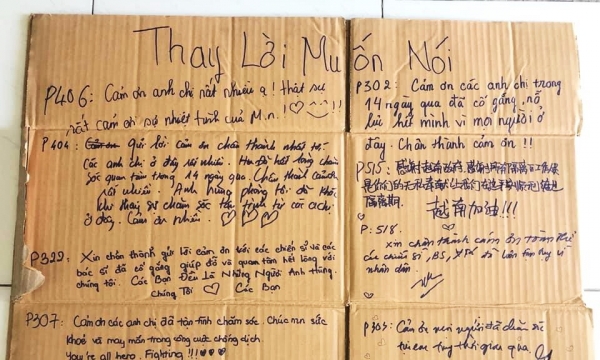 Thay Lời Muốn Nói
P406: Cảm ơn anh chị rất nhiều ạ! thật sự
rất cảm ơn sự nhiệt tình của M.n!
P404: gửi lời cảm ơn chân thành nhất tới
các anh chị ở đây rất nhiều. Họ đã hết lòng chăm
sóc quan tâm trong 14 ngày qua. Chân thành cảm ơn
rất nhiều. Anh hùng
khi thấy sự chăm sóc tận tình từ các a chị
ở đây. Cảm ơn nhiều.
P322: Xin chân thành gửi lời cảm ơn tới các chiến sĩ và các
bác sĩ đã cố gắng giúp đỡ và quan tâm hết lòng với
chúng tôi. Các Bạn Đều Là Những Người Anh Hùng.
Chúng Tôi Các Bạn
P307: Cảm ơn các anh chị đã tận tình chăm sóc. Chúc mn sức
khoẻ và may mắn trong công cuộc chống dịch
You're all hero. Fighting!!
P302: Cảm ơn các anh chị trong
14 ngày qua đã cố gắng, nỗ
lực hết mình vì mọi người ở
đây. Chân thành cảm ơn!!
P515: 感谢越南政府,感谢
是你们的无私奉献让我们
隔离期.
越南加油!!!
P: 518.
xin chân thành cảm ơn toàn thể
các chiến sĩ, BS, đã luôn tận tụy vì
nhân dân.
Cảm ơn mọi người đã chăm sóc
thời gian qua.